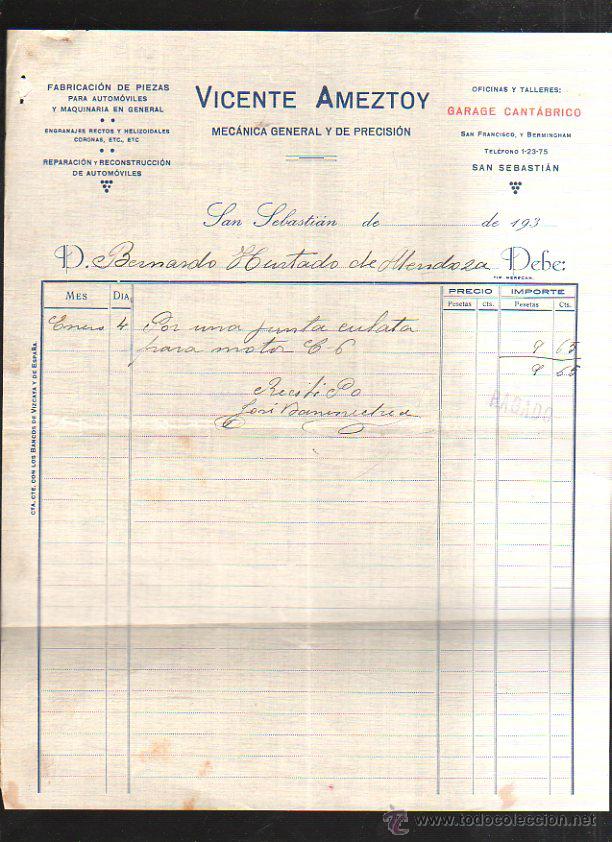 FABRICACIÓN DE PIEZAS
PARA AUTOMÓVILES
Y MAQUINARIA EN GENERAL
ENGRANAJES RECTOS Y HELIZOIDALES
CORONAS, ETC., ETC
REPARACIÓN Y RECONSTRUCCIÓN
DE AUTOMÓVILES
VICENTE AMEZTOY
MECÁNICA GENERAL Y DE PRECISIÓN
OFICINAS Y TALLERES:
GARAGE CANTÁBRICO
SAN FRANCISCO, Y BERMINGHAM
TELÉFONO 1-23-75
SAN SEBASTIÁN
San Sebastián de de 193
D. Bernardo Hurtado de Mendoza Debe:
TIP. MERECAN.
MES DIA PRECIO IMPORTE
Pesetas Cts. Pesetas Cts.
Enero 4 Por una junta culata
para motor C 6 9 65
9 65
Recibí Po
José
PAGADO
CTA. CTE. CON LOS BANCOS DE VIZCAYA Y DE ESPAÑA.
todocoleccion
www.todocoleccion.net